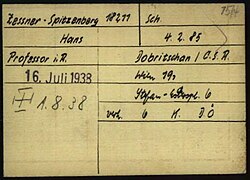 Zessner-Spitzenberg 18211 Sch.
Hans 4. 2. 85
Professor i.R. Dobritschan / Č.S.R.
16. Juli 1938 Wien 19,
III 1.8.38 6
verh. 6 K. DÖ